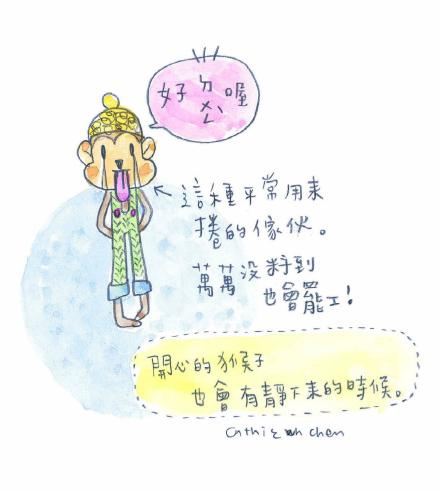 好ㄉㄨㄥˋ喔
這種平常用來
捲的傢伙。
萬萬沒料到
也會罷工!
開心的猴子
也會有靜下來的時候。
chen